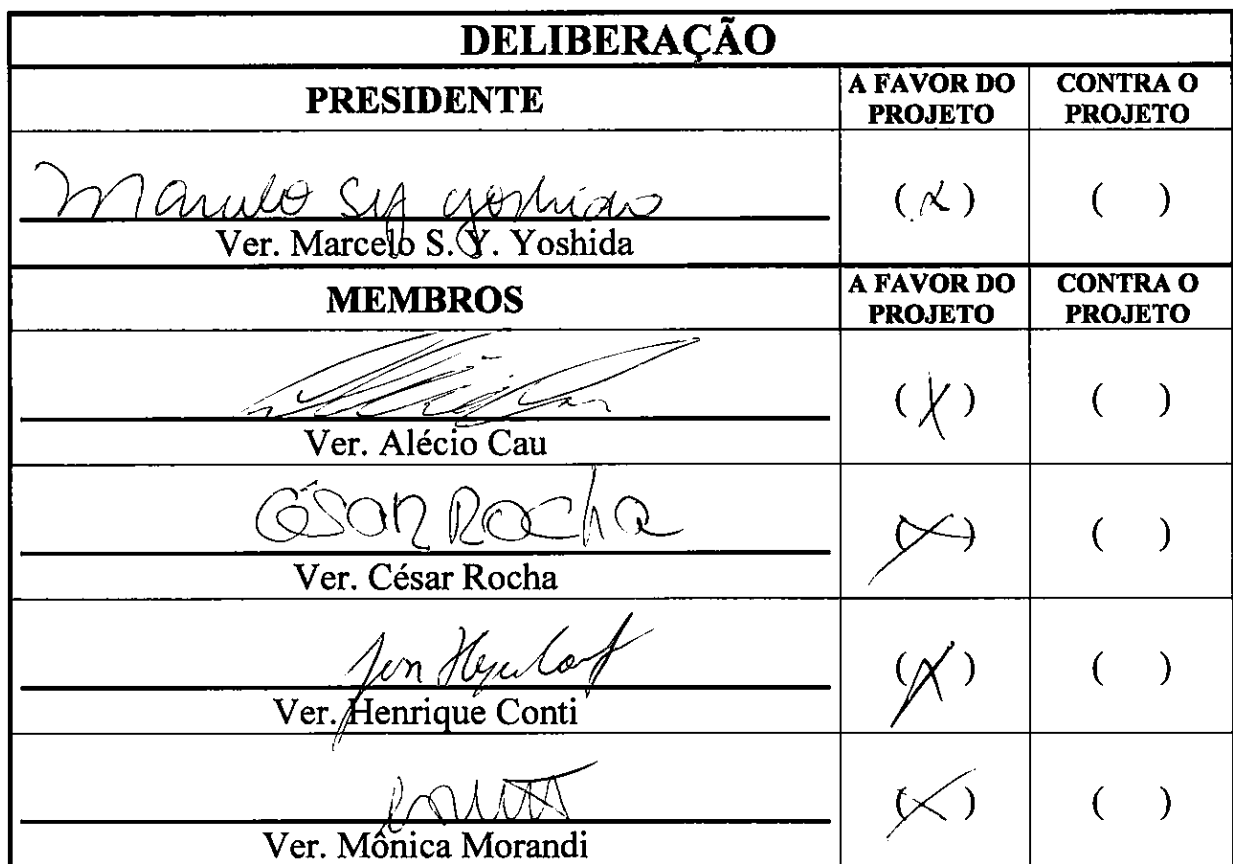 DELIBERAÇÃO
PRESIDENTE
A FAVOR DO PROJETO
CONTRA O PROJETO
Marcelo SY yoshida
( x )
( )
Ver. Marcelo S. Y. Yoshida
MEMBROS
A FAVOR DO PROJETO
CONTRA O PROJETO
( X )
( )
Ver. Alécio Cau
CÉSAR ROCHA
( X )
( )
Ver. César Rocha
( X )
( )
Ver. Henrique Conti
( X )
( )
Ver. Mônica Morandi